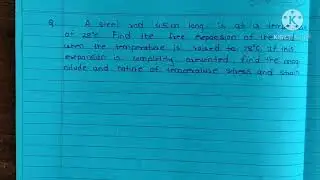 Q A steel rod 45m long is at is temp
at 28°c Find the free expansion of the rod
when the temperature is raised to 78°c, if this
expansion is completely prevented, find the mag
nitude and nature of temperature stress and strain
KINEMASTER